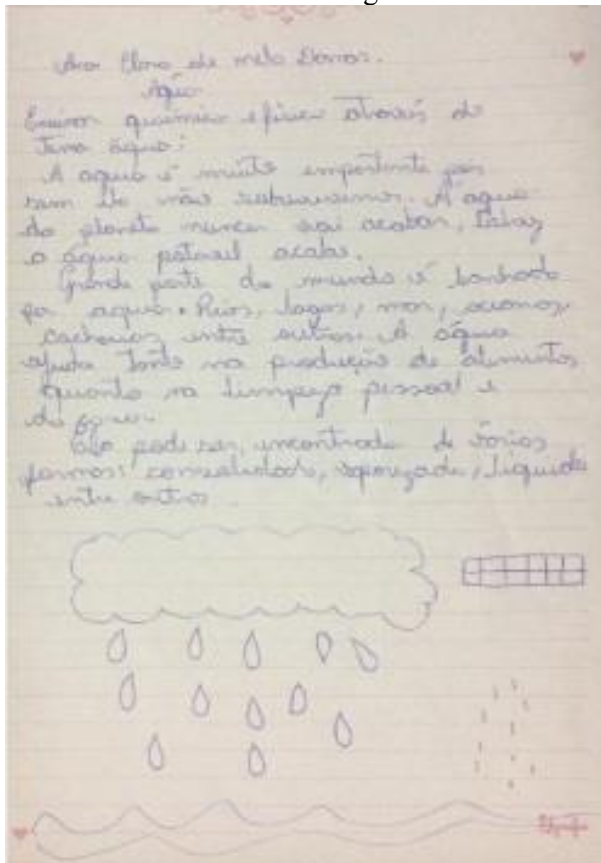 Ana de melo
Água
Ensinar quimica e fisica através do
tema água:
A agua é muito importante pois
sem ela não sobrevivemos. A agua
do planeta nunca vai acabar, talvez
a água potavel acabe.
Grande parte do mundo é banhado
por agua. Rios, lagos, mar, oceanos,
cachoeiras, entre outros. A água
ajuda tanto na produção de alimentos
quanto na limpeza pessoal e
do
Ela pode ser encontrada de várias
formas: vaporizada, liquida
entre outros